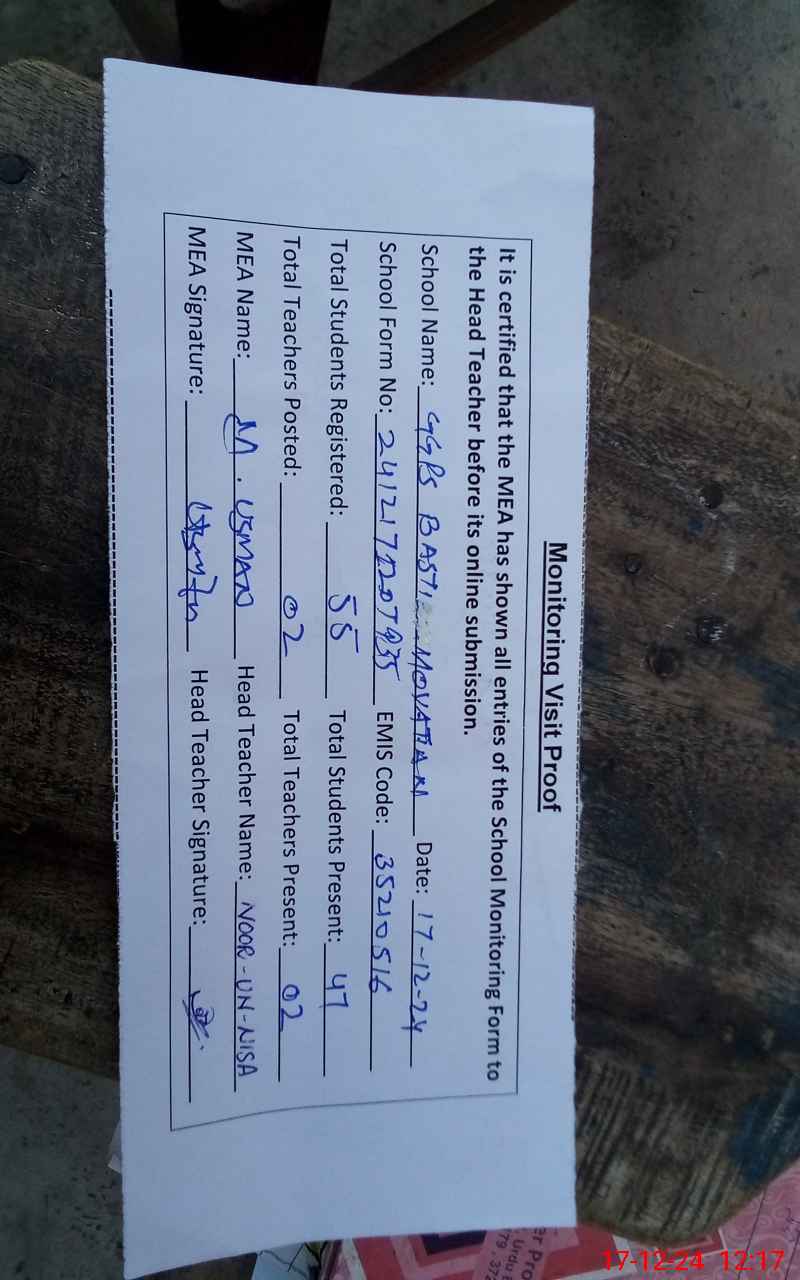 Monitoring Visit Proof
It is certified that the MEA has shown all entries of the School Monitoring Form to
the Head Teacher before its online submission.
School Name: GGPS BASTI MOVATIAN Date: 17-12-24
School Form No: EMIS Code: 35210516
Total Students Registered: 55 Total Students Present: 47
Total Teachers Posted: 02 Total Teachers Present: 02
MEA Name: M. USMAN Head Teacher Name: NOOR-UN-NISA
MEA Signature: Head Teacher Signature:
17-12-24 12:17